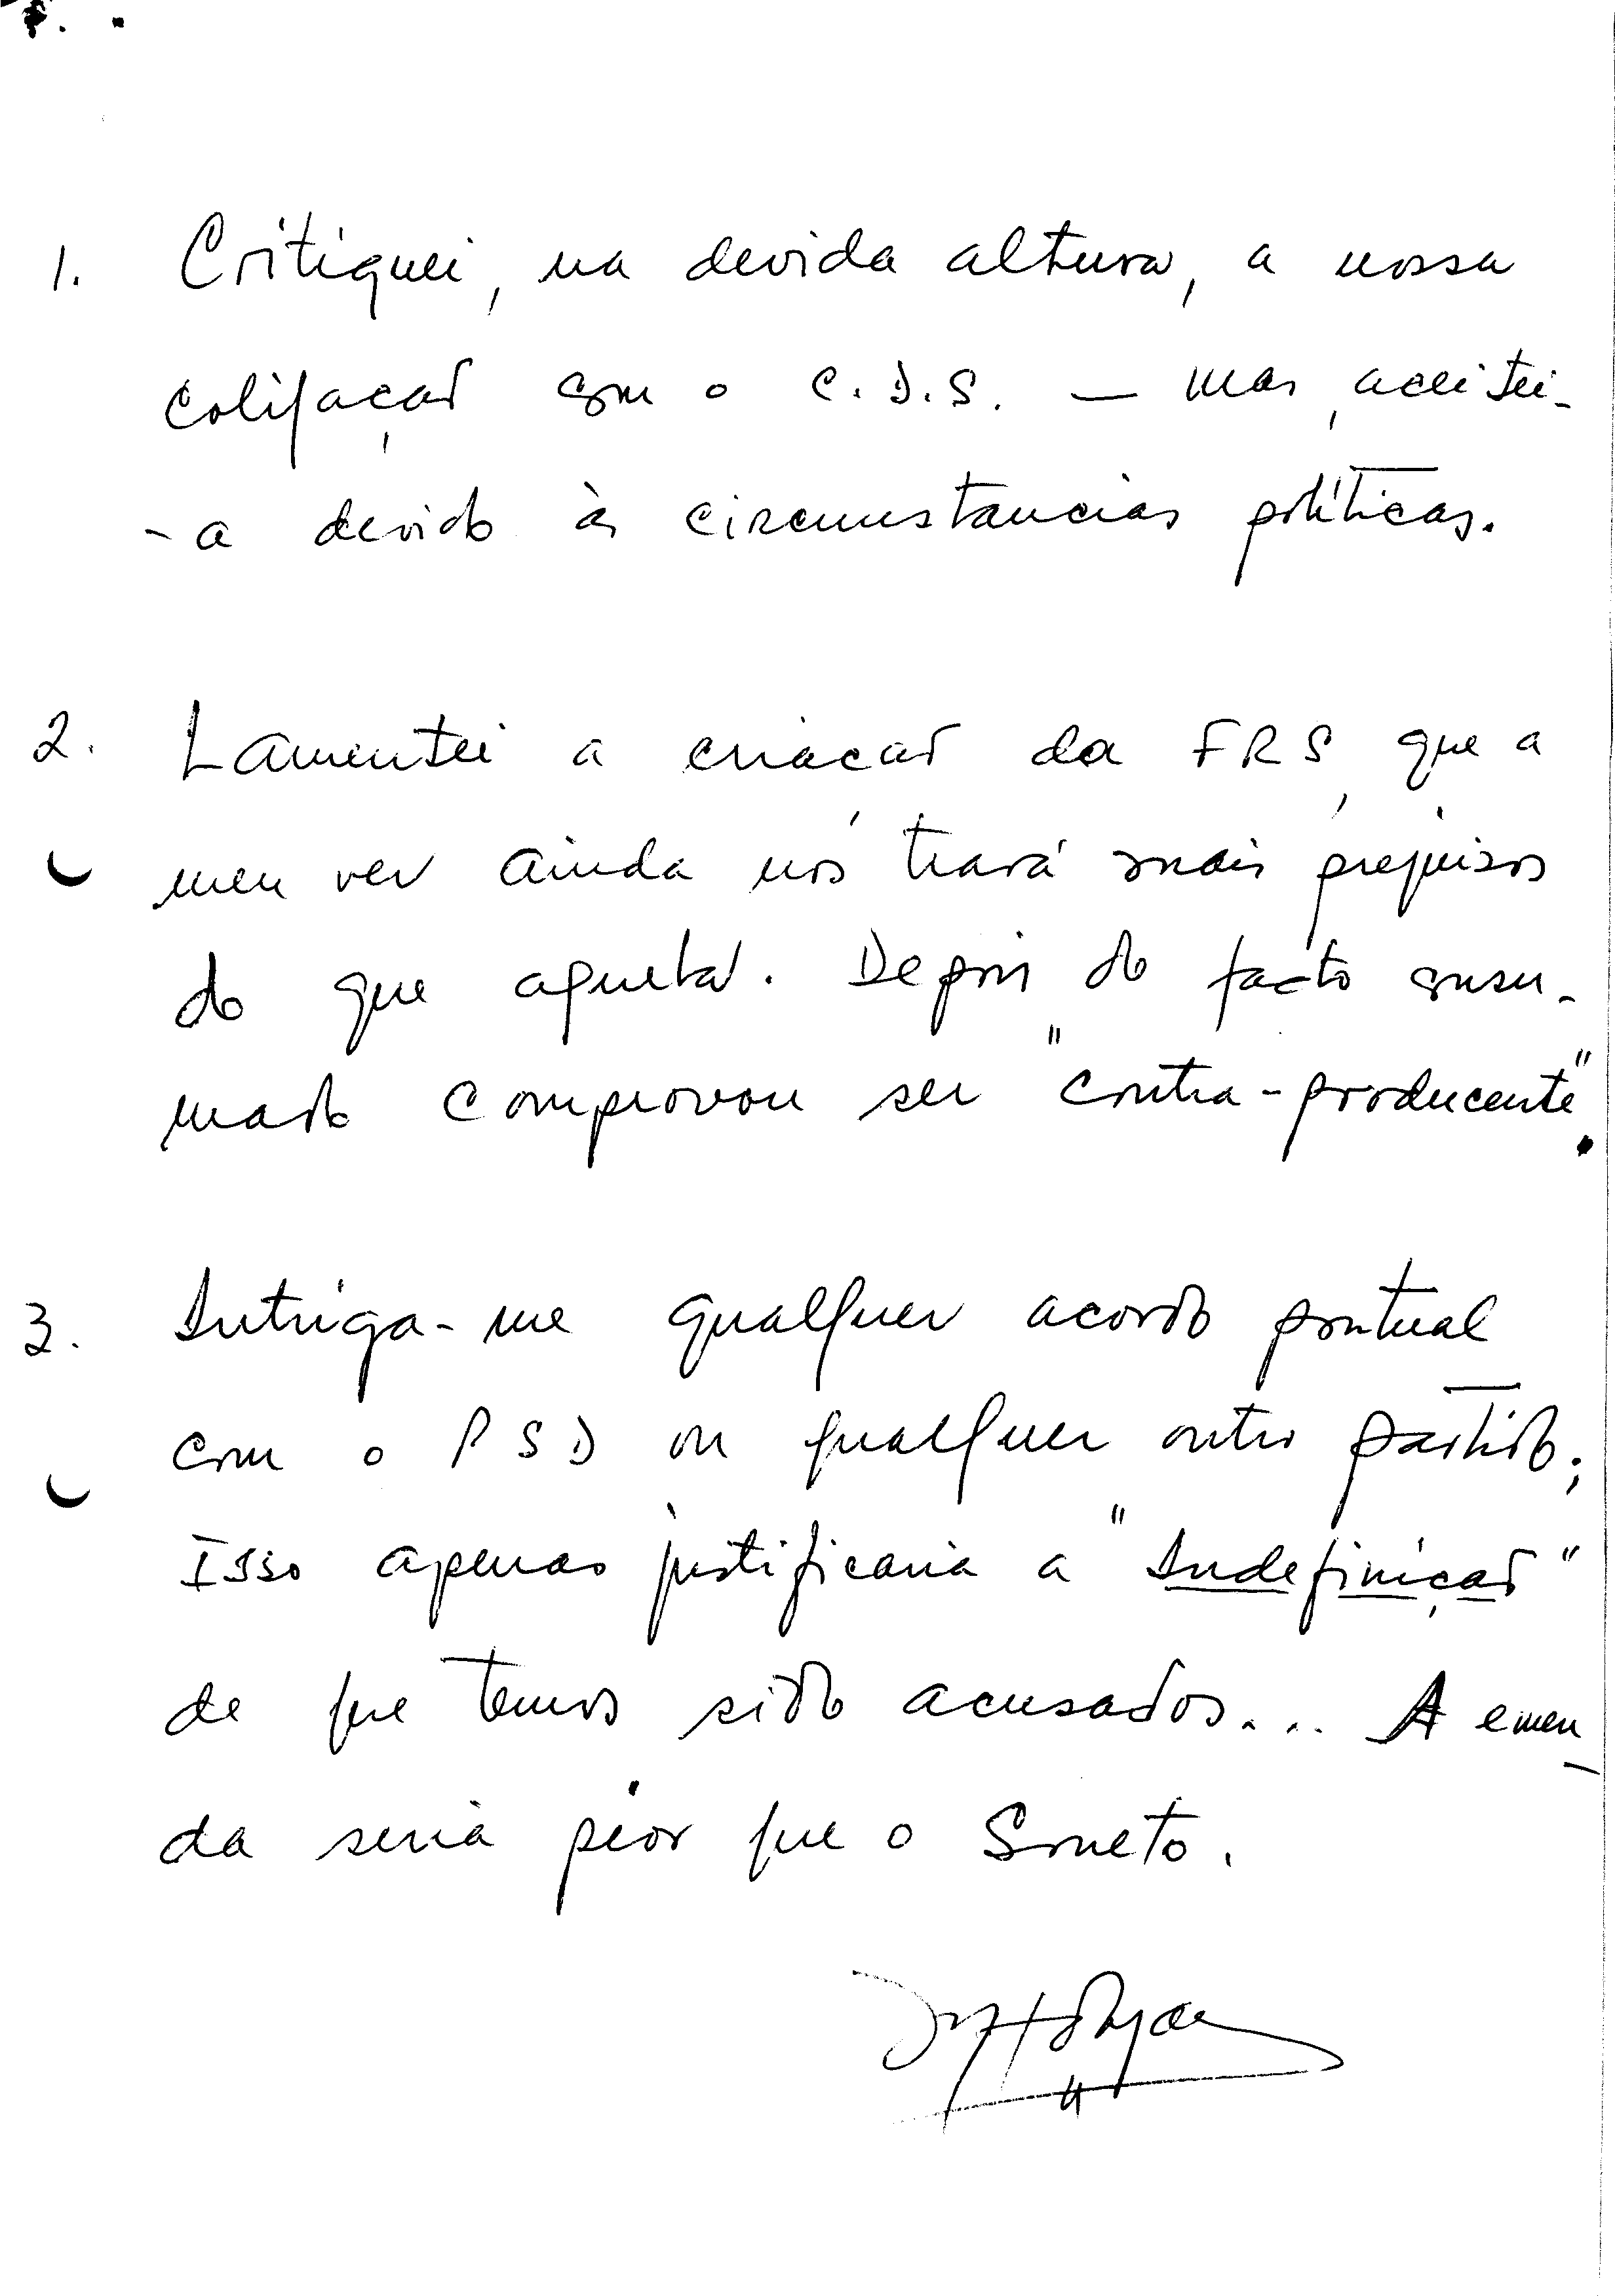 1. Critiquei, na devida altura, a nossa
coligação com o C.D.S. — mas, aceitei-
-a devido às circunstancias políticas.
2. Lamentei a criação da FRS, que a
meu ver ainda nos trará mais prejuizos
do que aquela. Depois do facto consu-
mado comprovou ser "contra-producente".
3. Intriga-me qualquer acordo pontual
com o PSD ou qualquer outro partido;
Isso apenas justificaria a "Indefinição"
de que temos sido acusados... A emen-
da seria pior que o Soneto.